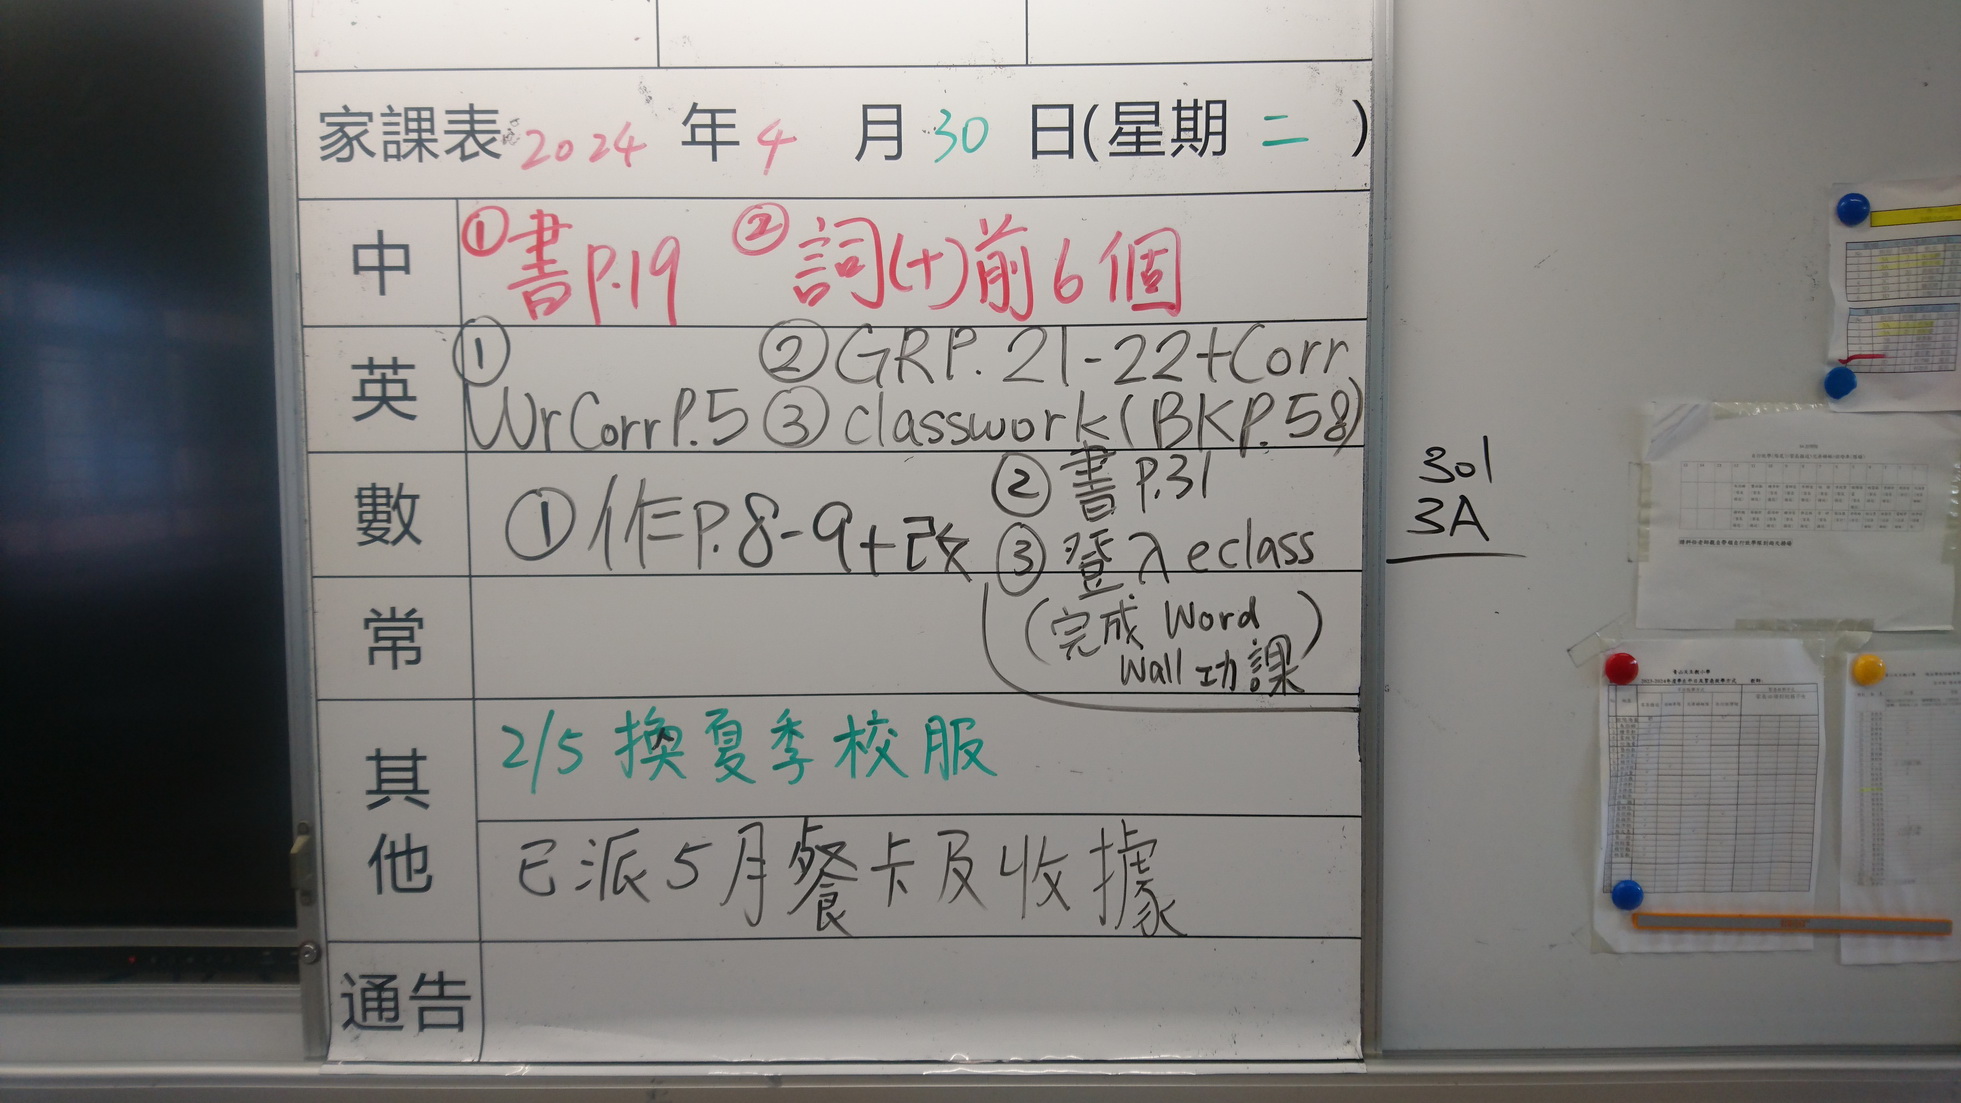 家課表 2024 年 4 月 30 日(星期 二 )
中 ①書P.19 ②詞(十)前6個
英 ① ②GRP.21-22+Corr
WrCorrP.5 ③classwork(BKP.58)
數 ①作P.8-9+改 ②書P.31
③登入eclass
(完成 Word
Wall功課)
常
其他 2/5 換夏季校服
已派5月餐卡及收據
通告
301
3A